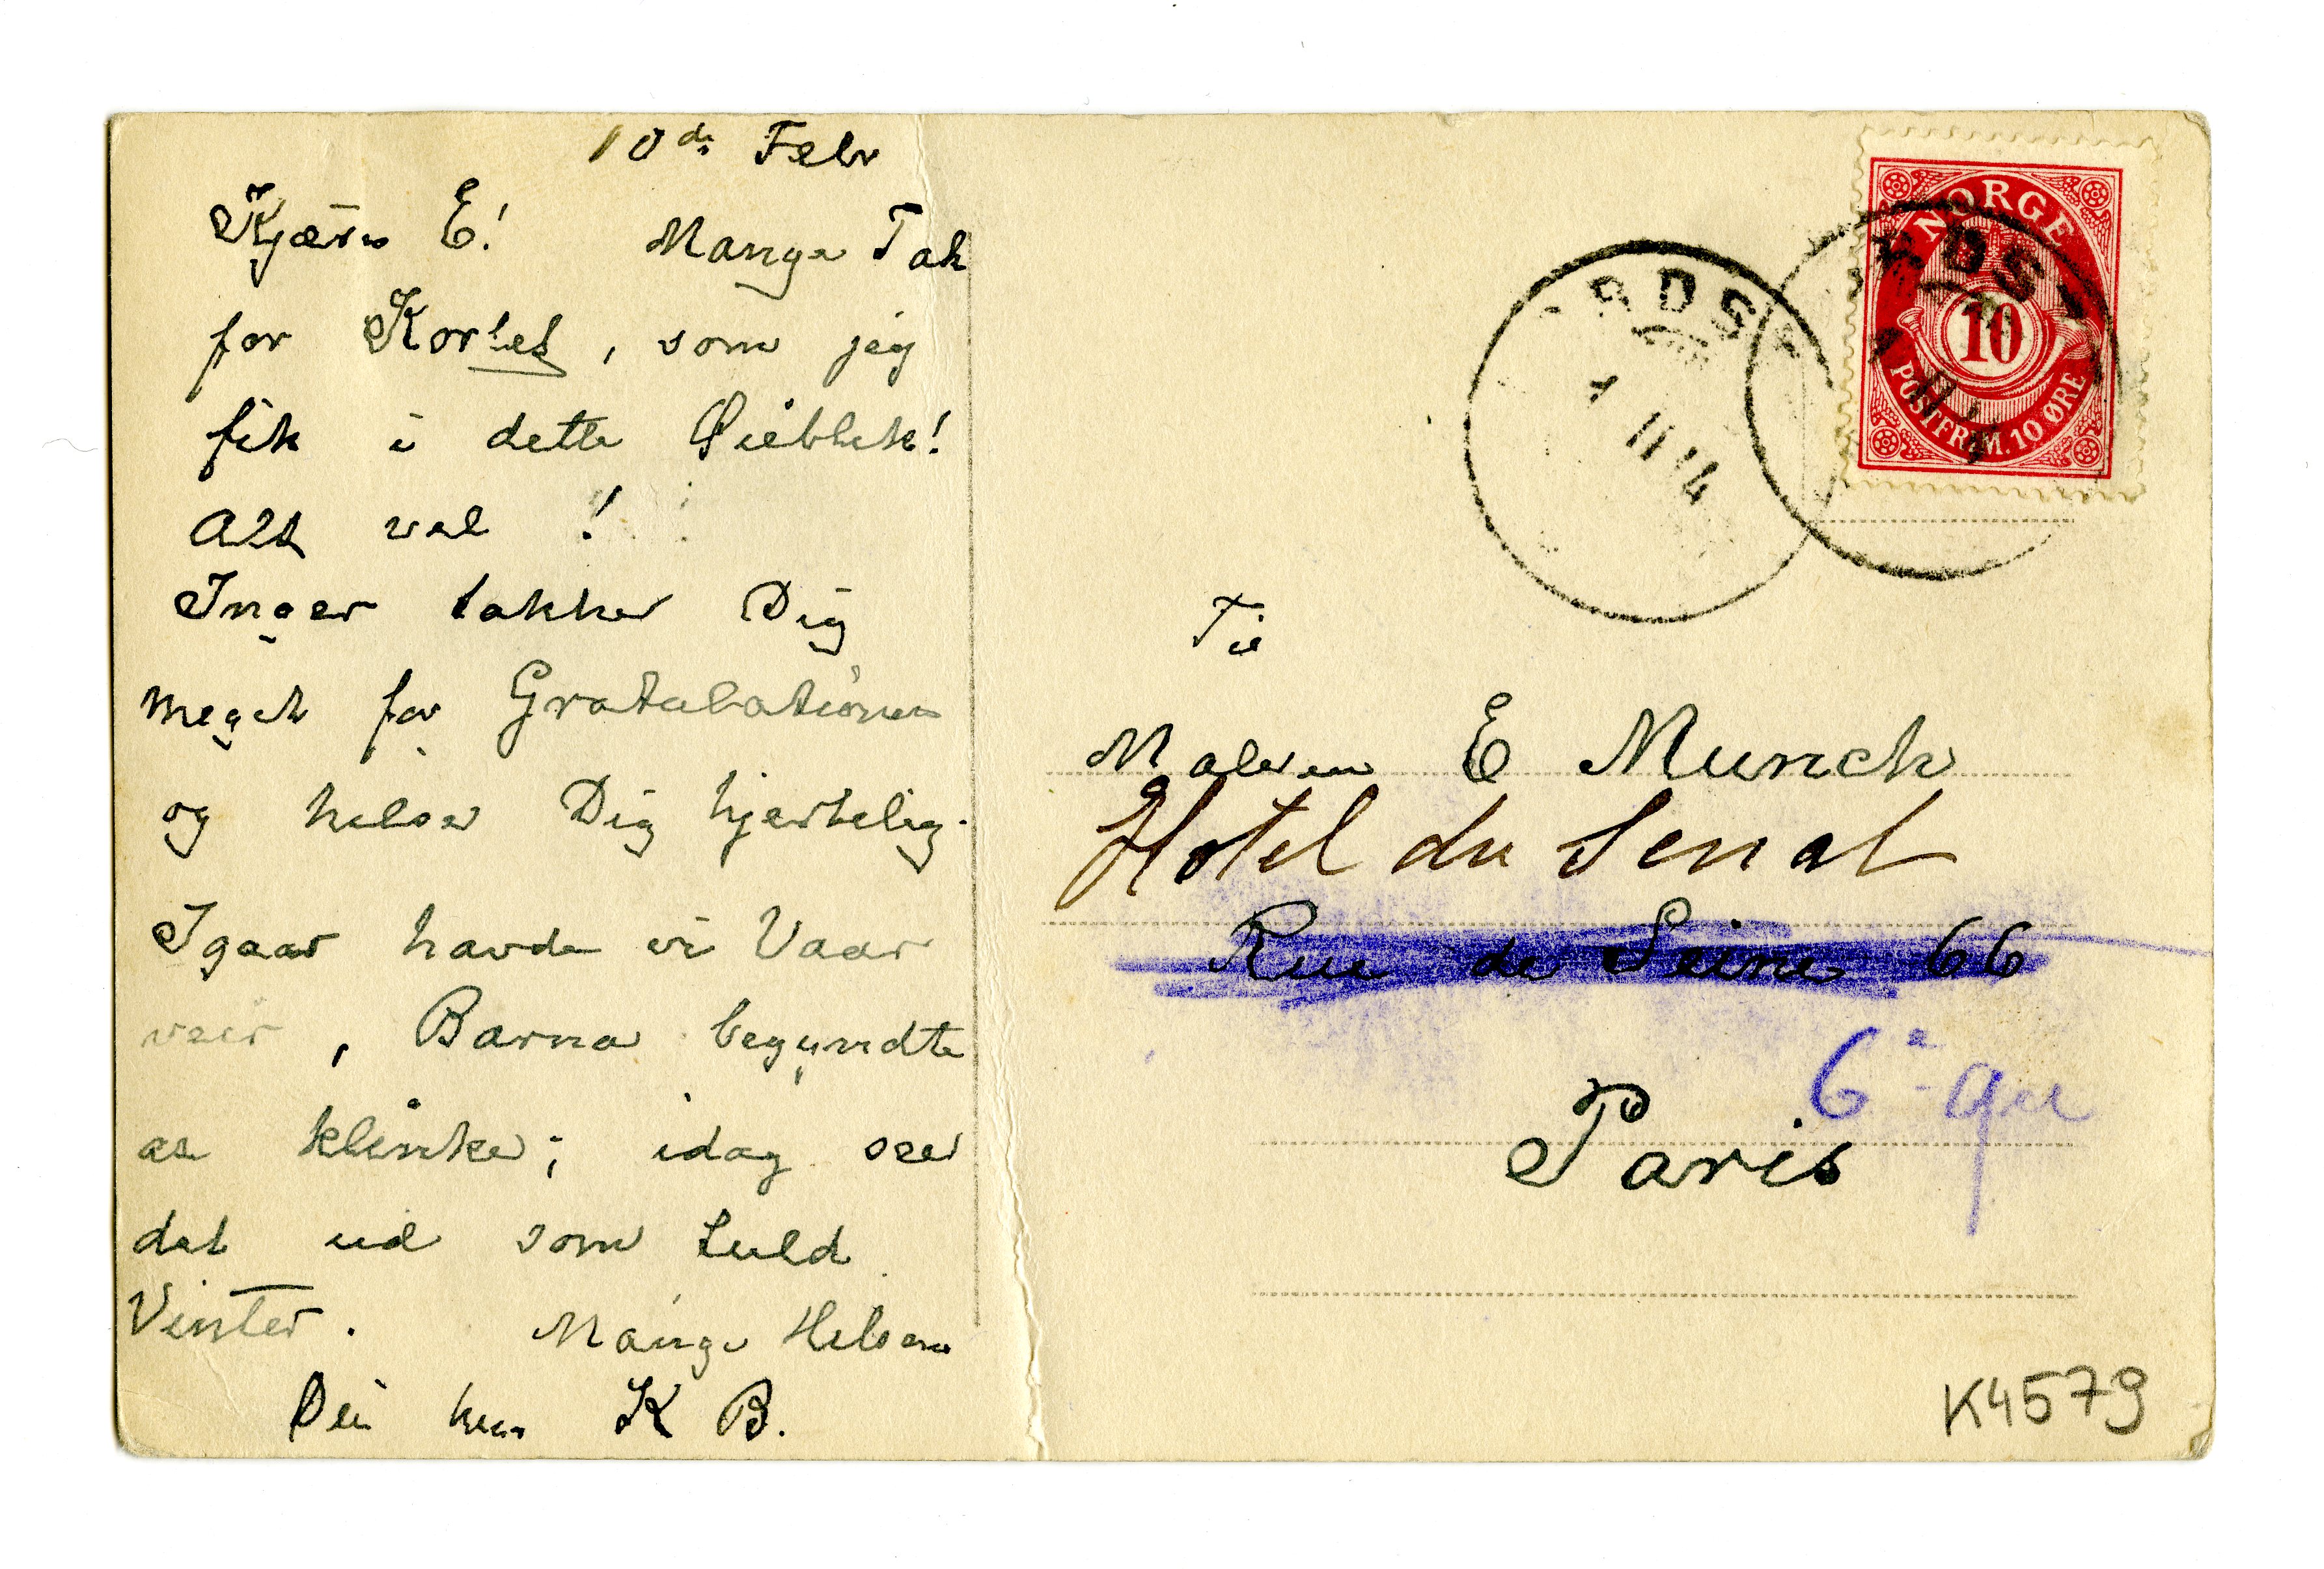 10de Febr
Kjære E! Mange Tak
for Kortet, som jeg
fik i dette Øieblik!
Alt vel!
Inger takker Dig
meget for Gratulationen
og hilser Dig hjertelig.
Igaar havde vi Vaar
veir, Barna begyndte
at klinke; idag ser
det ud som fuld
Vinter. Mange Hilsen
Din hen K B.
NORGE
10
POSTFRIM. 10 ØRE
RDST
II 14
RDST
Til
Maleren E Munch
Hotel du Senat
Rue de Seine 66
6e
Paris
K4579